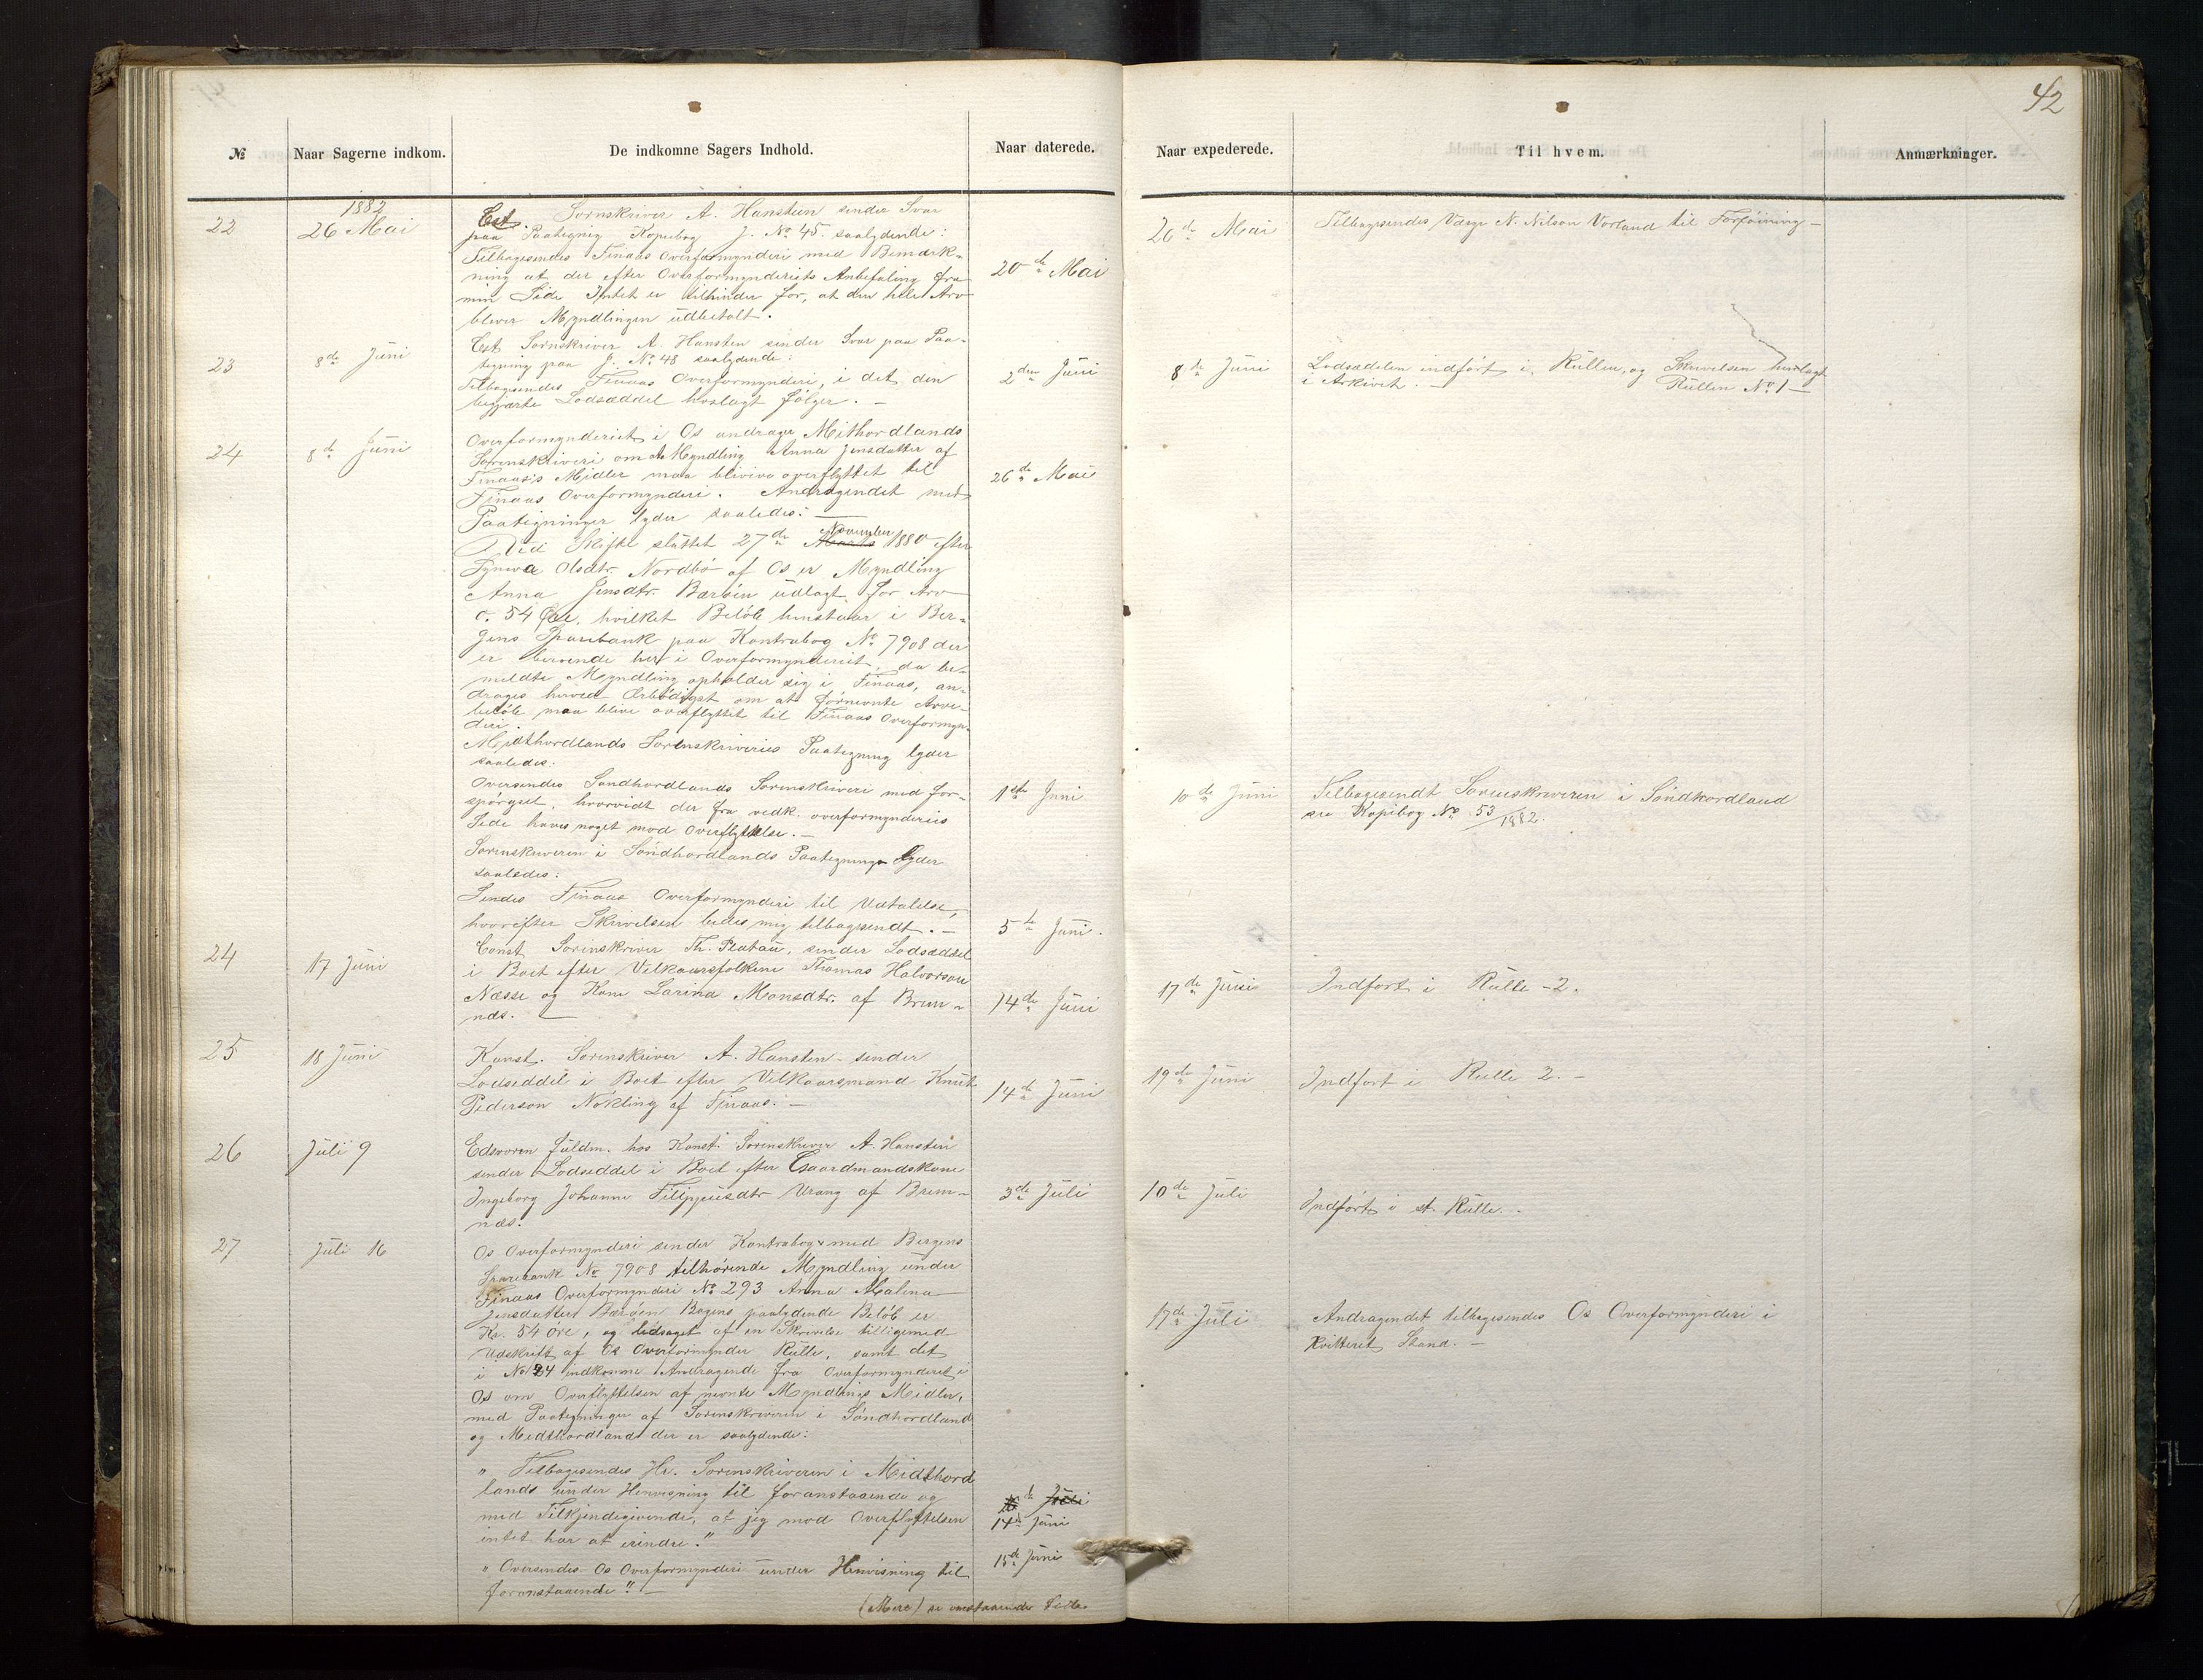 42
№ Naar Sagerne indkom. De indkomne Sagers Indhold. Naar daterede. Naar expederede. Til hvem. Anmærkninger.
1882
22 26 Mai
Cst. Sornskriver A. Hansteen sender Svar
paa Paategnig Kopiebog J. No 45. saalydende:
Tilbagesendes Finaas Overformynderi med Bemærk-
ning at der efter Overformynderiets Anbefaling fra
min Side Intet er tilhinder for, at den hele Arv
bliver Myndlingen udbetalt.
20de Mai
26de Mai
Tilbagesendes Værge N. Nilson Vorland til Forføining –
23 8de Juni
Cst Sornskriver A. Hansten sender Svar paa Paa-
tegning paa J. No 48 saalydende:
Tilbagesendes Finaas Overformynderi, i det den
begjærte Lodseddel hoslagt følger. –
2den Juni
8de Juni
Lodsedelen indført i Rullen, og Skrivelsen henlagt
i Arkivet. – Rullen No 1 –
24 8de Juni
Overformynderiet i Os andrager Mithordlands
Sorenskriveri om at Myndling Anna Jensdatter af
Finaas's Midler maa blivive overflyttet til
Finaas Overformynderi. Andragendet med
Paategninger lyder saaledes: –
26de Mai
Ved Skifte sluttet 27de Marts November 1880 efter
Synva Olsdtr. Nordbø af Os er Myndling
Anna Jensdtr. Bærøen udlagt for Arv
c. 54 Øre, hvilket Beløb henstaar i Ber-
gens Sparebank paa Kontrabog No 7908 der
er beroende her i Overformynderiet, da be-
meldte Myndling opholder sig i Finaas, an-
drages herved Ærbødigst om at førnevnte Arve-
beløb maa blive overflyttet til Finaas Overformyn-
deri.
Midthordlands Sorenskriveries Paategning lyder
saaledes:
Oversendes Søndhordlands Sorenskriveri med for-
spørgsel, hvorvidt der fra vedk. overformynderies
Side haves noget mod Overflyttelse. –
1ste Juni
10de Juni
Tilbagesendt Sorenskriveren i Søndhordland
see Kopibog No 53/1882.
Sorenskriveren i Søndhordlands Paategninge lyder
saaledes:
Sendes Finaas Overformynderi til Udtalelse,
hvorefter Skrivelsen bedes mig tilbagesendt. –
5te Juni.
24 17 Juni
Const Sorenskriver Th. Platou, sender Lodseddel
i Boet efter Velkaarsfolkene Thomas Halvorson
Næsse og Kone Larina Monsdtr. af Brem-
nes. –
14de Juni
17de Juni
Indført i Rulle – 2.
25 18 Juni
Konst. Sorenskriver A. Hansten – sender
Lodseddel i Boet efter Velkaarsmand Knut
Pederson Nøkling af Finaas. –
14de Juni
19de Juni
Indført i Rulle 2. –
26 Juli 9
Edsvoren fuldm. hos Konst. Sorenskriver A. Hansten
sender Lodseddel i Boet efter Gaardmandskone
Ingeborg Johanne Filippusdtr Vrang af Brem-
nes.
3de Juli
10de Juli
Indført i st. Rulle. –
27 Juli 16
Os Overformynderi sender Kontrabog med Bergens
Sparebank No 7908 tilhørende Myndling under
Finaas Overformynderi No 293 Anna Malena
Jensdatter Bærøen Bogens paalydende Beløb er
Kr. 54 øre, og ledsaget af en Skrivelse tilligemed
Udskrift af Os Overformynder Rulle, samt det
i No 24 indkomne Andragende fra Overformynderiet i
Os om Overflyttelsen af nevnte Myndlings Midler,
med Paategninger af Sorenskriveren i Søndhordland
og Midthordland der er saalydende:
17de Juli
Andragendet tilbagesendes Os Overformynderi i
kvitteret Stand. –
" Tilbagesendes Hr. Sorenskriveren i Midthord
lands under Henvisning til foranstaaende og
med Tilkjendegivende, at jeg mod Overflyttelsen
intet har at erindre."
de Juli
14de Juni
" Oversendes Os Overformynderi under Henvisning til
foranstaaende." –
15de Juni
(Mere) se omstaaende Side